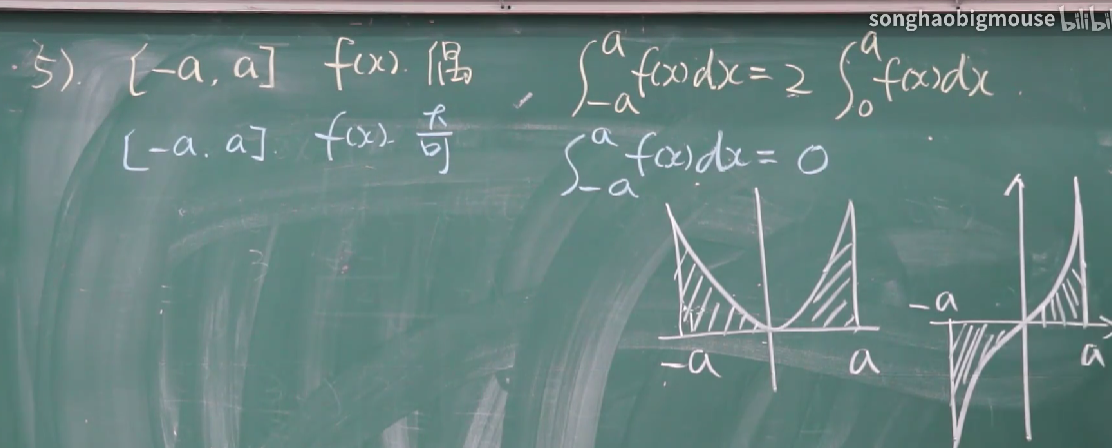 songhaobigmouse bilibili
5). [-a, a] f(x). 偶, ∫_{-a}^{a} f(x)dx = 2 ∫_{0}^{a} f(x)dx.
[-a. a]. f(x). 奇 ∫_{-a}^{a} f(x)dx = 0
-a a
-a a